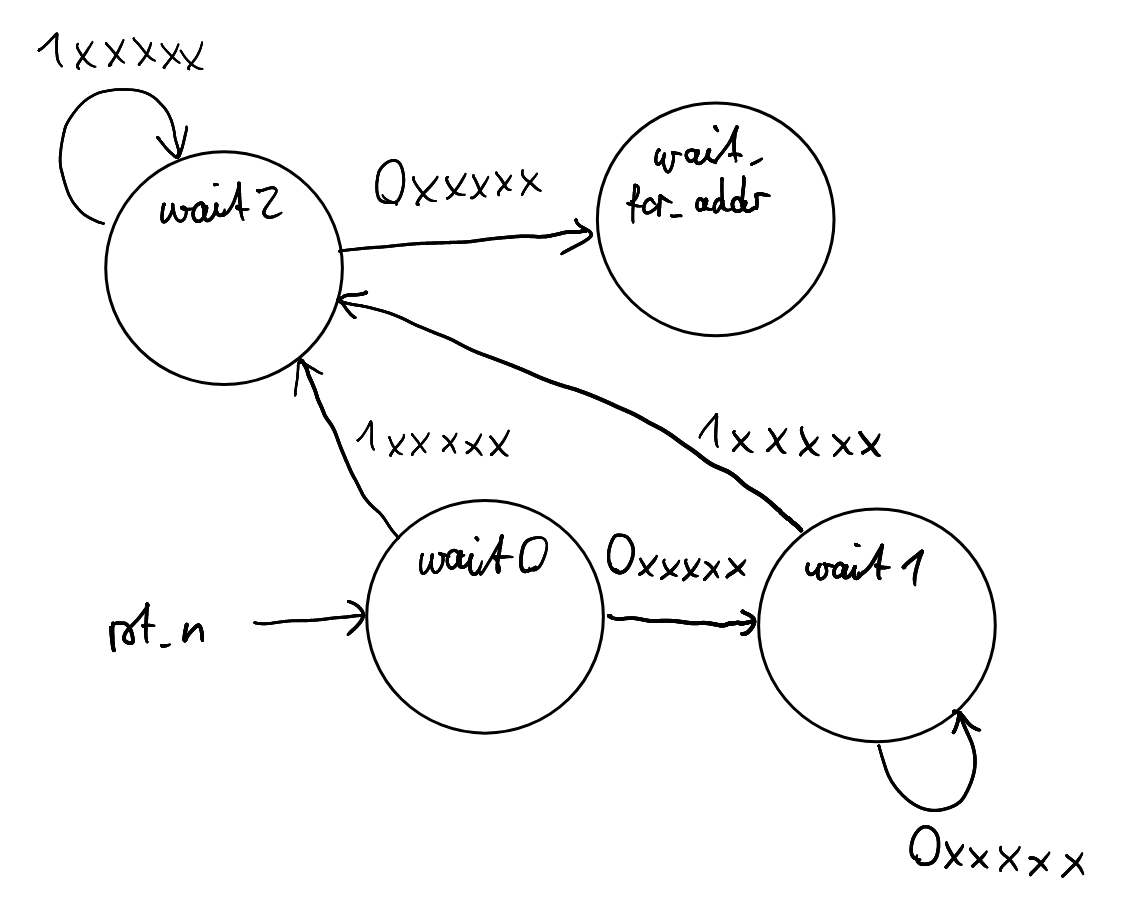 1xxxxx
wait2
0xxxxx
wait_
for_addr
1xxxxx
1xxxxx
wait0
0xxxxx
wait1
rst_n
0xxxxx